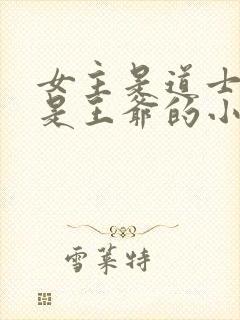 女主是道士
是王爷的小
雪莱特